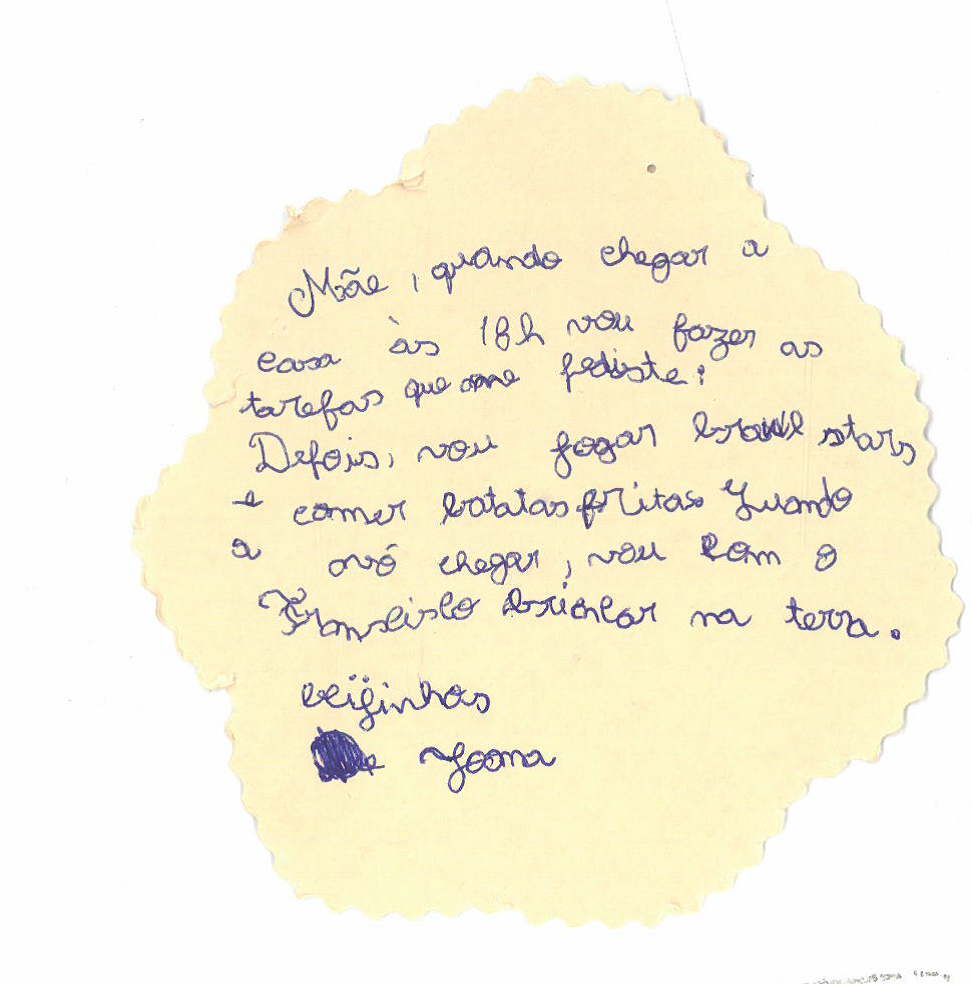 Mãe, quando chegar a
casa às 18h vou fazer as
tarefas que me pediste.
Depois, vou jogar brawl stars
e comer batatas fritas. Quando
a avó chegar, vou com o
Francisco brincar na terra.
beijinhos
Joana